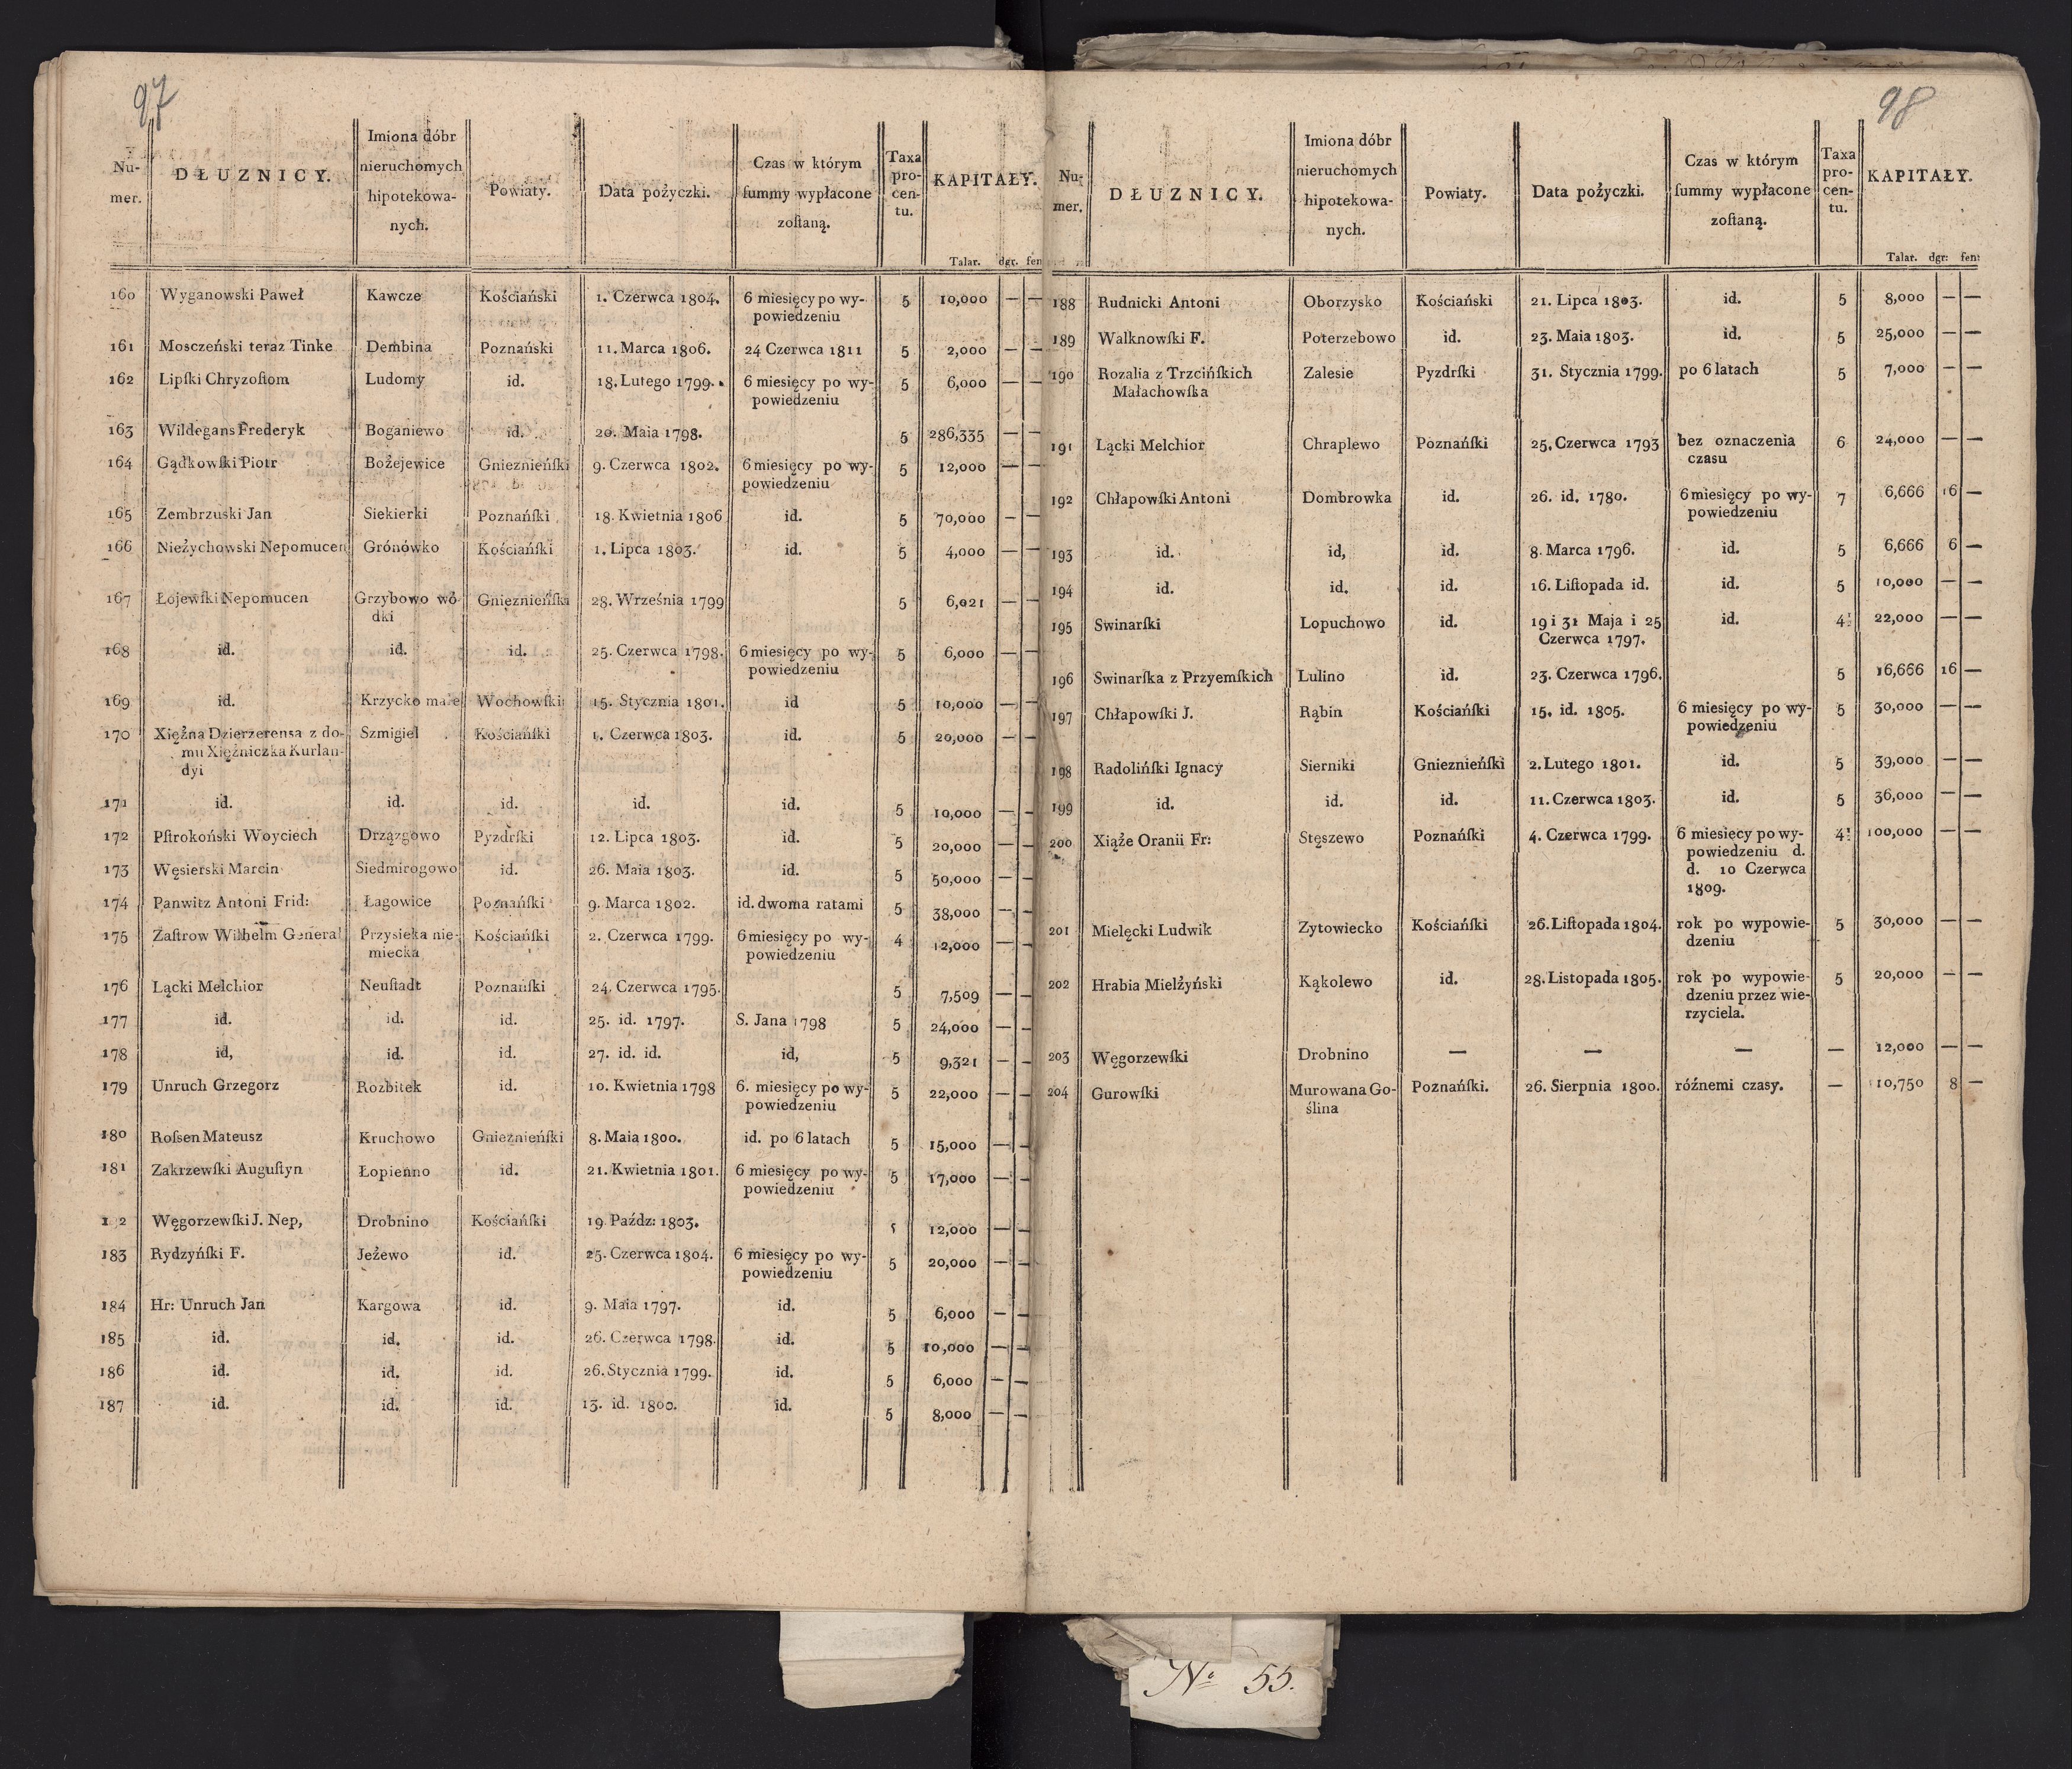 97
Nu-
mer.
DŁUZNICY.
Imiona dóbr
nieruchomych
hipotekowa-
nych.
Powiaty.
Data pożyczki.
Czas w którym
ſummy wypłacone
zoſtaną.
Taxa
pro-
cen-
tu.
KAPITAŁY.
Talar. dgr. fen
160 Wyganowski Paweł Kawcze Kościański 1. Czerwca 1804. 6 miesięcy po wy- 5 10,000 — —
powiedzeniu
161 Mosczeński teraz Tinke Dembina Poznański 11. Marca 1806. 24 Czerwca 1811 5 2,000 — —
162 Lipſki Chryzoſtom Ludomy id. 18. Lutego 1799. 6 miesięcy po wy- 5 6,000 — —
powiedzeniu
163 Wildegans Frederyk Boganiewo id. 20. Maia 1798. 5 286,335 — —
164 Gądkowſki Piotr Bożejewice Gnieznieńſki 9. Czerwca 1802. 6 miesięcy po wy- 5 12,000 — —
powiedzeniu
165 Zembrzuski Jan Siekierki Poznańſki 18. Kwietnia 1806 id. 5 70,000 — —
166 Nieżychowski Nepomucen Grónówko Kościańſki 1. Lipca 1803. id. 5 4,000 — —
167 Łojewſki Nepomucen Grzybowo wó- Gnieznieńſki 28. Września 1799 5 6,021 — —
dki
168 id. id. id. 25. Czerwca 1798. 6 miesięcy po wy- 5 6,000 — —
powiedzeniu
169 id. Krzycko małe Wochowſki 15. Stycznia 1801. id 5 10,000 — —
170 Xiężna Dzierzerensa z do- Szmigiel Kościańſki 1. Czerwca 1803. id. 5 20,000 — —
mu Xiężniczka Kurlan-
dyi
171 id. id. id. id. id. 5 10,000 — —
172 Pſtrokoński Woyciech Drzązgowo Pyzdrſki 12. Lipca 1803. id. 5 20,000 — —
173 Węsierski Marcin Siedmirogowo id. 26. Maia 1803. id. 5 50,000 — —
174 Panwitz Antoni Frid: Łagowice Poznańſki 9. Marca 1802. id. dwoma ratami 5 38,000 — —
175 Zaſtrow Wilhelm General Przysieka nie- Kościańſki 2. Czerwca 1799. 6 miesięcy po wy- 4 12,000 — —
miecka powiedzeniu
176 Lącki Melchior Neuſtadt Poznańſki 24. Czerwca 1795. 5 7,509 — —
177 id. id. id. 25. id. 1797. S. Jana 1798 5 24,000 — —
178 id, id. id. 27. id. id. id, 5 9,321 — —
179 Unruch Grzegorz Rozbitek id. 10. Kwietnia 1798 6. miesięcy po wy- 5 22,000 — —
powiedzeniu
180 Roſsen Mateusz Kruchowo Gnieznieńſki 8. Maia 1800. id. po 6 latach 5 15,000 — —
181 Zakrzewſki Auguſtyn Łopienno id. 21. Kwietnia 1801. 6 miesięcy po wy- 5 17,000 — —
powiedzeniu
1 2 Węgorzewſki J. Nep, Drobnino Kościańſki 19 Paźdz: 1803. 5 12,000 — —
183 Rydzyńſki F. Jeżewo id. 25. Czerwca 1804. 6 miesięcy po wy- 5 20,000 — —
powiedzeniu
184 Hr: Unruch Jan Kargowa id. 9. Maia 1797. id. 5 6,000 — —
185 id. id. id. 26. Czerwca 1798. id. 5 10,000 — —
186 id. id. id. 26. Stycznia 1799. id. 5 6,000 — —
187 id. id. id. 13. id. 1800. id. 5 8,000 — —
98
Nu-
mer.
DŁUZNICY.
Imiona dóbr
nieruchomych
hipotekowa-
nych.
Powiaty.
Data pożyczki.
Czas w którym
ſummy wypłacone
zoſtaną.
Taxa
pro-
cen-
tu.
KAPITAŁY.
Talar. dgr: fen:
188 Rudnicki Antoni Oborzysko Kościański 21. Lipca 1803. id. 5 8,000 — —
189 Walknowſki F. Poterzebowo id. 23. Maia 1803. id. 5 25,000 — —
190 Rozalia z Trzcińſkich Zalesie Pyzdrſki 31. Stycznia 1799. po 6 latach 5 7,000 — —
Małachowſka
191 Lącki Melchior Chraplewo Poznańſki 25. Czerwca 1793 bez oznaczenia 6 24,000 — —
czasu
192 Chłapowſki Antoni Dombrowka id. 26. id. 1780. 6 miesięcy po wy- 7 6,666 16 —
powiedzeniu
193 id. id, id. 8. Marca 1796. id. 5 6,666 6 —
194 id. id. id. 16. Liſtopada id. id. 5 10,000 — —
195 Swinarſki Lopuchowo id. 19 i 31 Maja i 25 id. 4½ 22,000 — —
Czerwca 1797.
196 Swinarſka z Przyemſkich Lulino id. 23. Czerwca 1796. 5 16,666 16 —
197 Chłapowſki J. Rąbin Kościańſki 15. id. 1805. 6 miesięcy po wy- 5 30,000 — —
powiedzeniu
198 Radolińſki Ignacy Sierniki Gnieznieńſki 2. Lutego 1801. id. 5 39,000 — —
199 id. id. id. 11. Czerwca 1803. id. 5 36,000 — —
200 Xiąże Oranii Fr: Stęszewo Poznańſki 4. Czerwca 1799. 6 miesięcy po wy- 4½ 100,000 — —
powiedzeniu d.
d. 10 Czerwca
1809.
201 Mielęcki Ludwik Zytowiecko Kościańſki 26. Liſtopada 1804. rok po wypowie- 5 30,000 — —
dzeniu
202 Hrabia Mielżyński Kąkolewo id. 28. Listopada 1805. rok po wypowie- 5 20,000 — —
dzeniu przez wie-
rzyciela.
203 Węgorzewſki Drobnino — — — — 12,000 — —
204 Gurowſki Murowana Go- Poznańſki. 26. Sierpnia 1800. różnemi czasy. — 10,750 8 —
ślina
Nº 55.